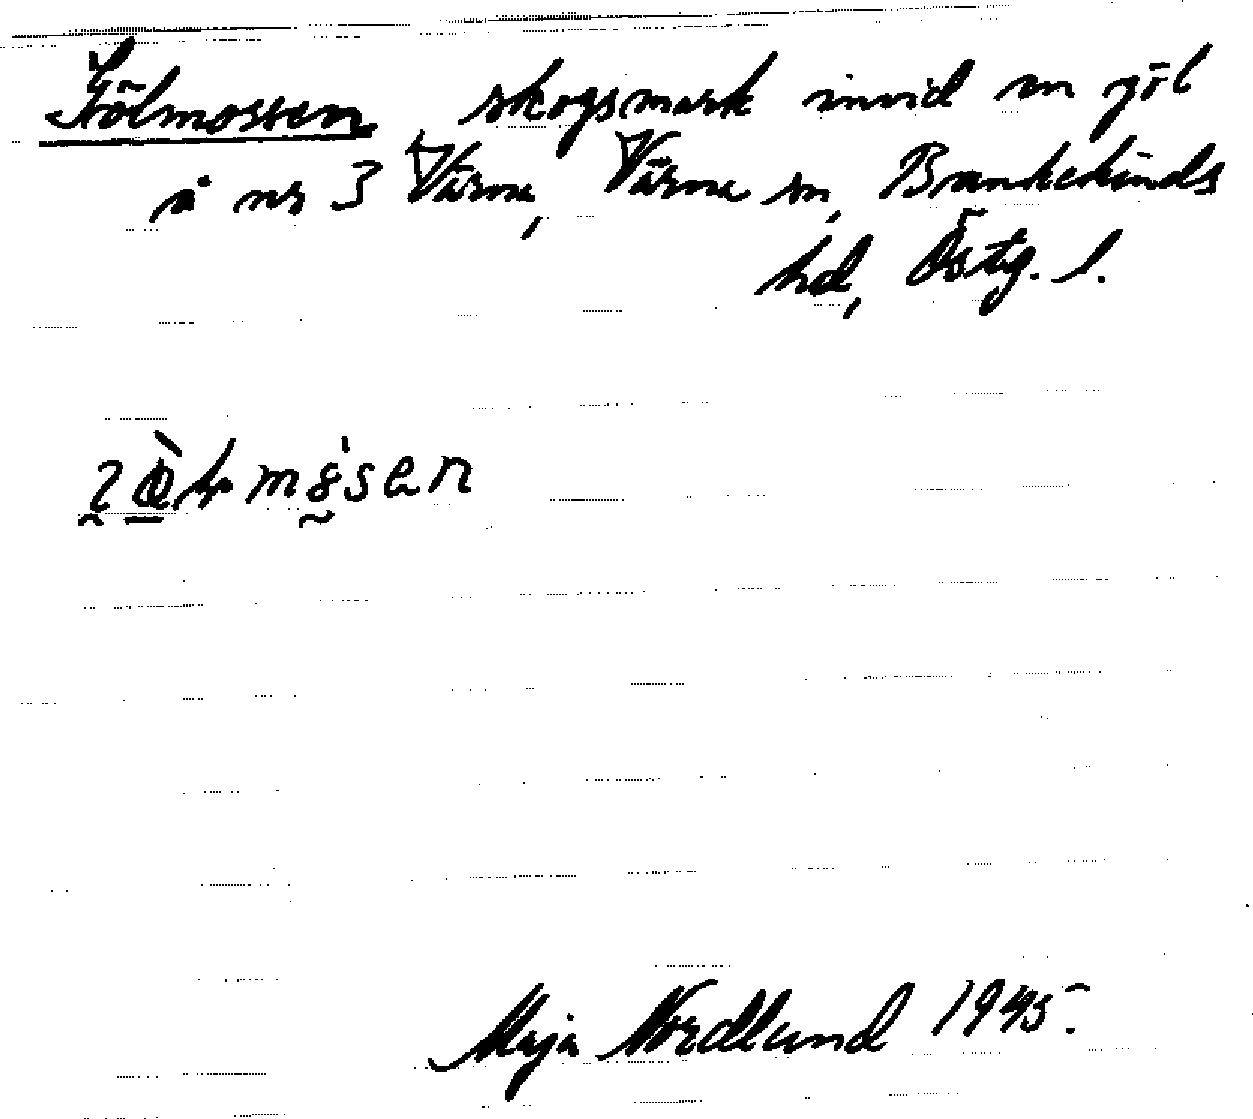 Gölmossen skogsmark invid en göl
å nr 3 Värna, Värna sn, Bankekinds
hd, Östg. l.
Maja Nordlund 1945.